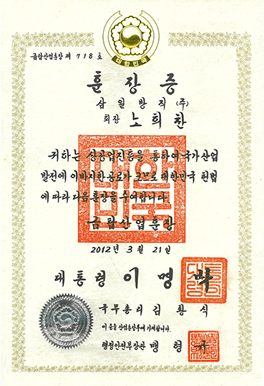 대한민국
금탑산업훈장 제 718 호
훈장증
삼일방직(주)
회장 노희찬
귀하는 상공업진흥을 통하여 국가산업
발전에 이바지한 공로가 크므로 대한민국 헌법
에 따라 다음 훈장을 수여합니다
금탑산업훈장
2012년 3월 21일
대통령 이명박
국무총리 김황식
이 증을 산업훈장부에 기재합니다
행정안전부장관 맹형규